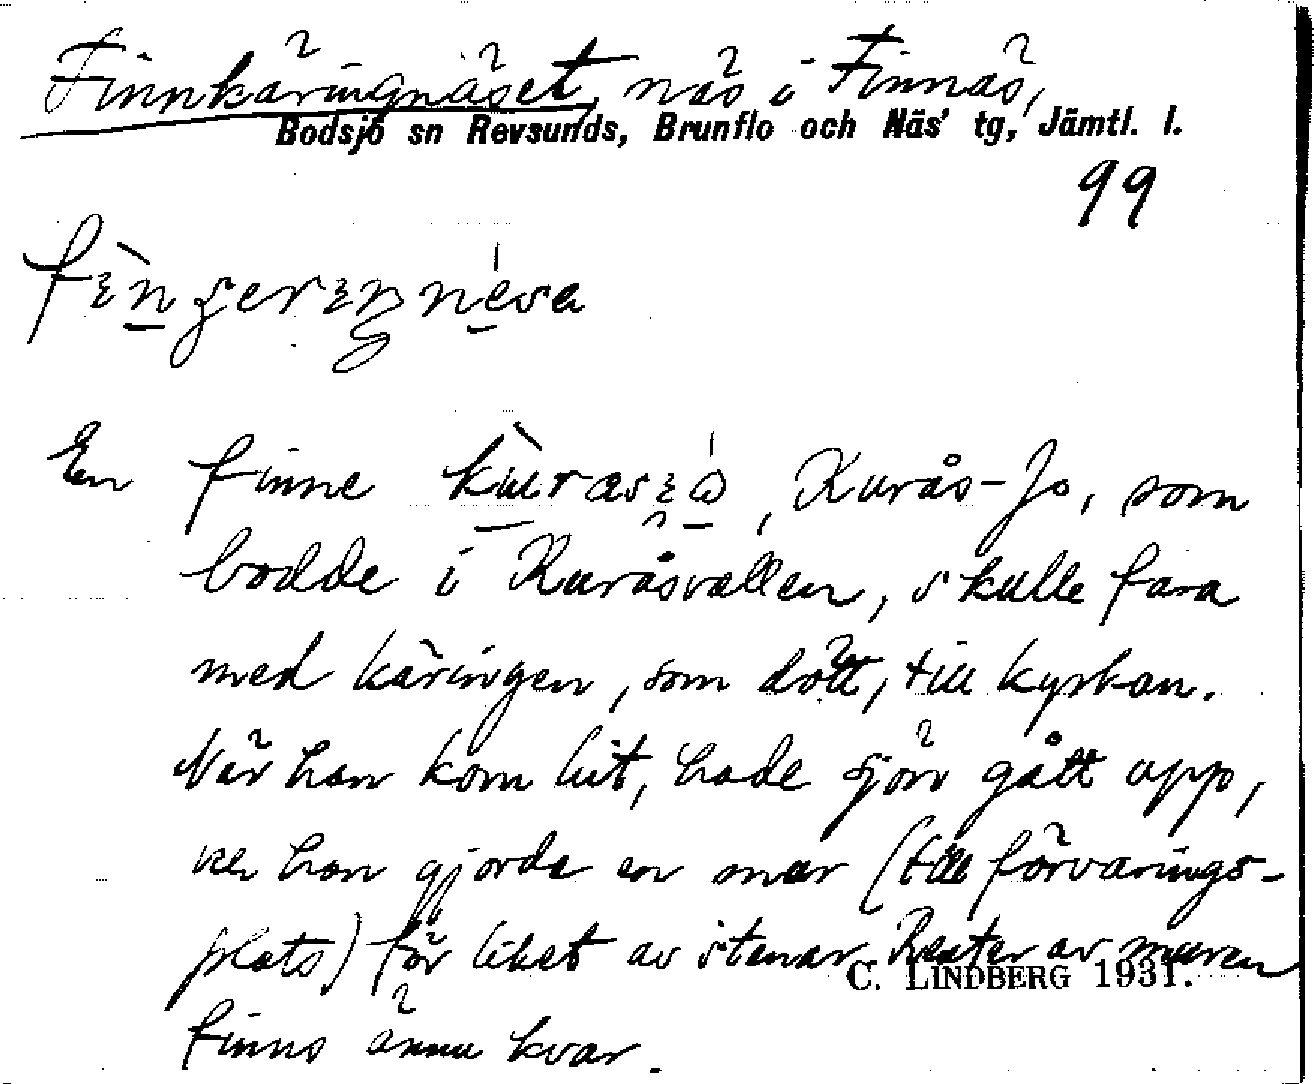 Finnkäringnäset, näs i Finnäs,
Bodsjö sn Revsunds, Brunflo och Näs' tg, Jämtl. l.
99
En finne , Kurås-Jo, som
bodde i Kuråsvallen, skulle fara
med käringen, som dött, till kyrkan.
När han kom hit, hade sjön gått upp,
han gjorde en mur (till förvarings-
plats) för liket av stenar. Rester av muren
C. LINDBERG 1931.
finns ännu kvar.